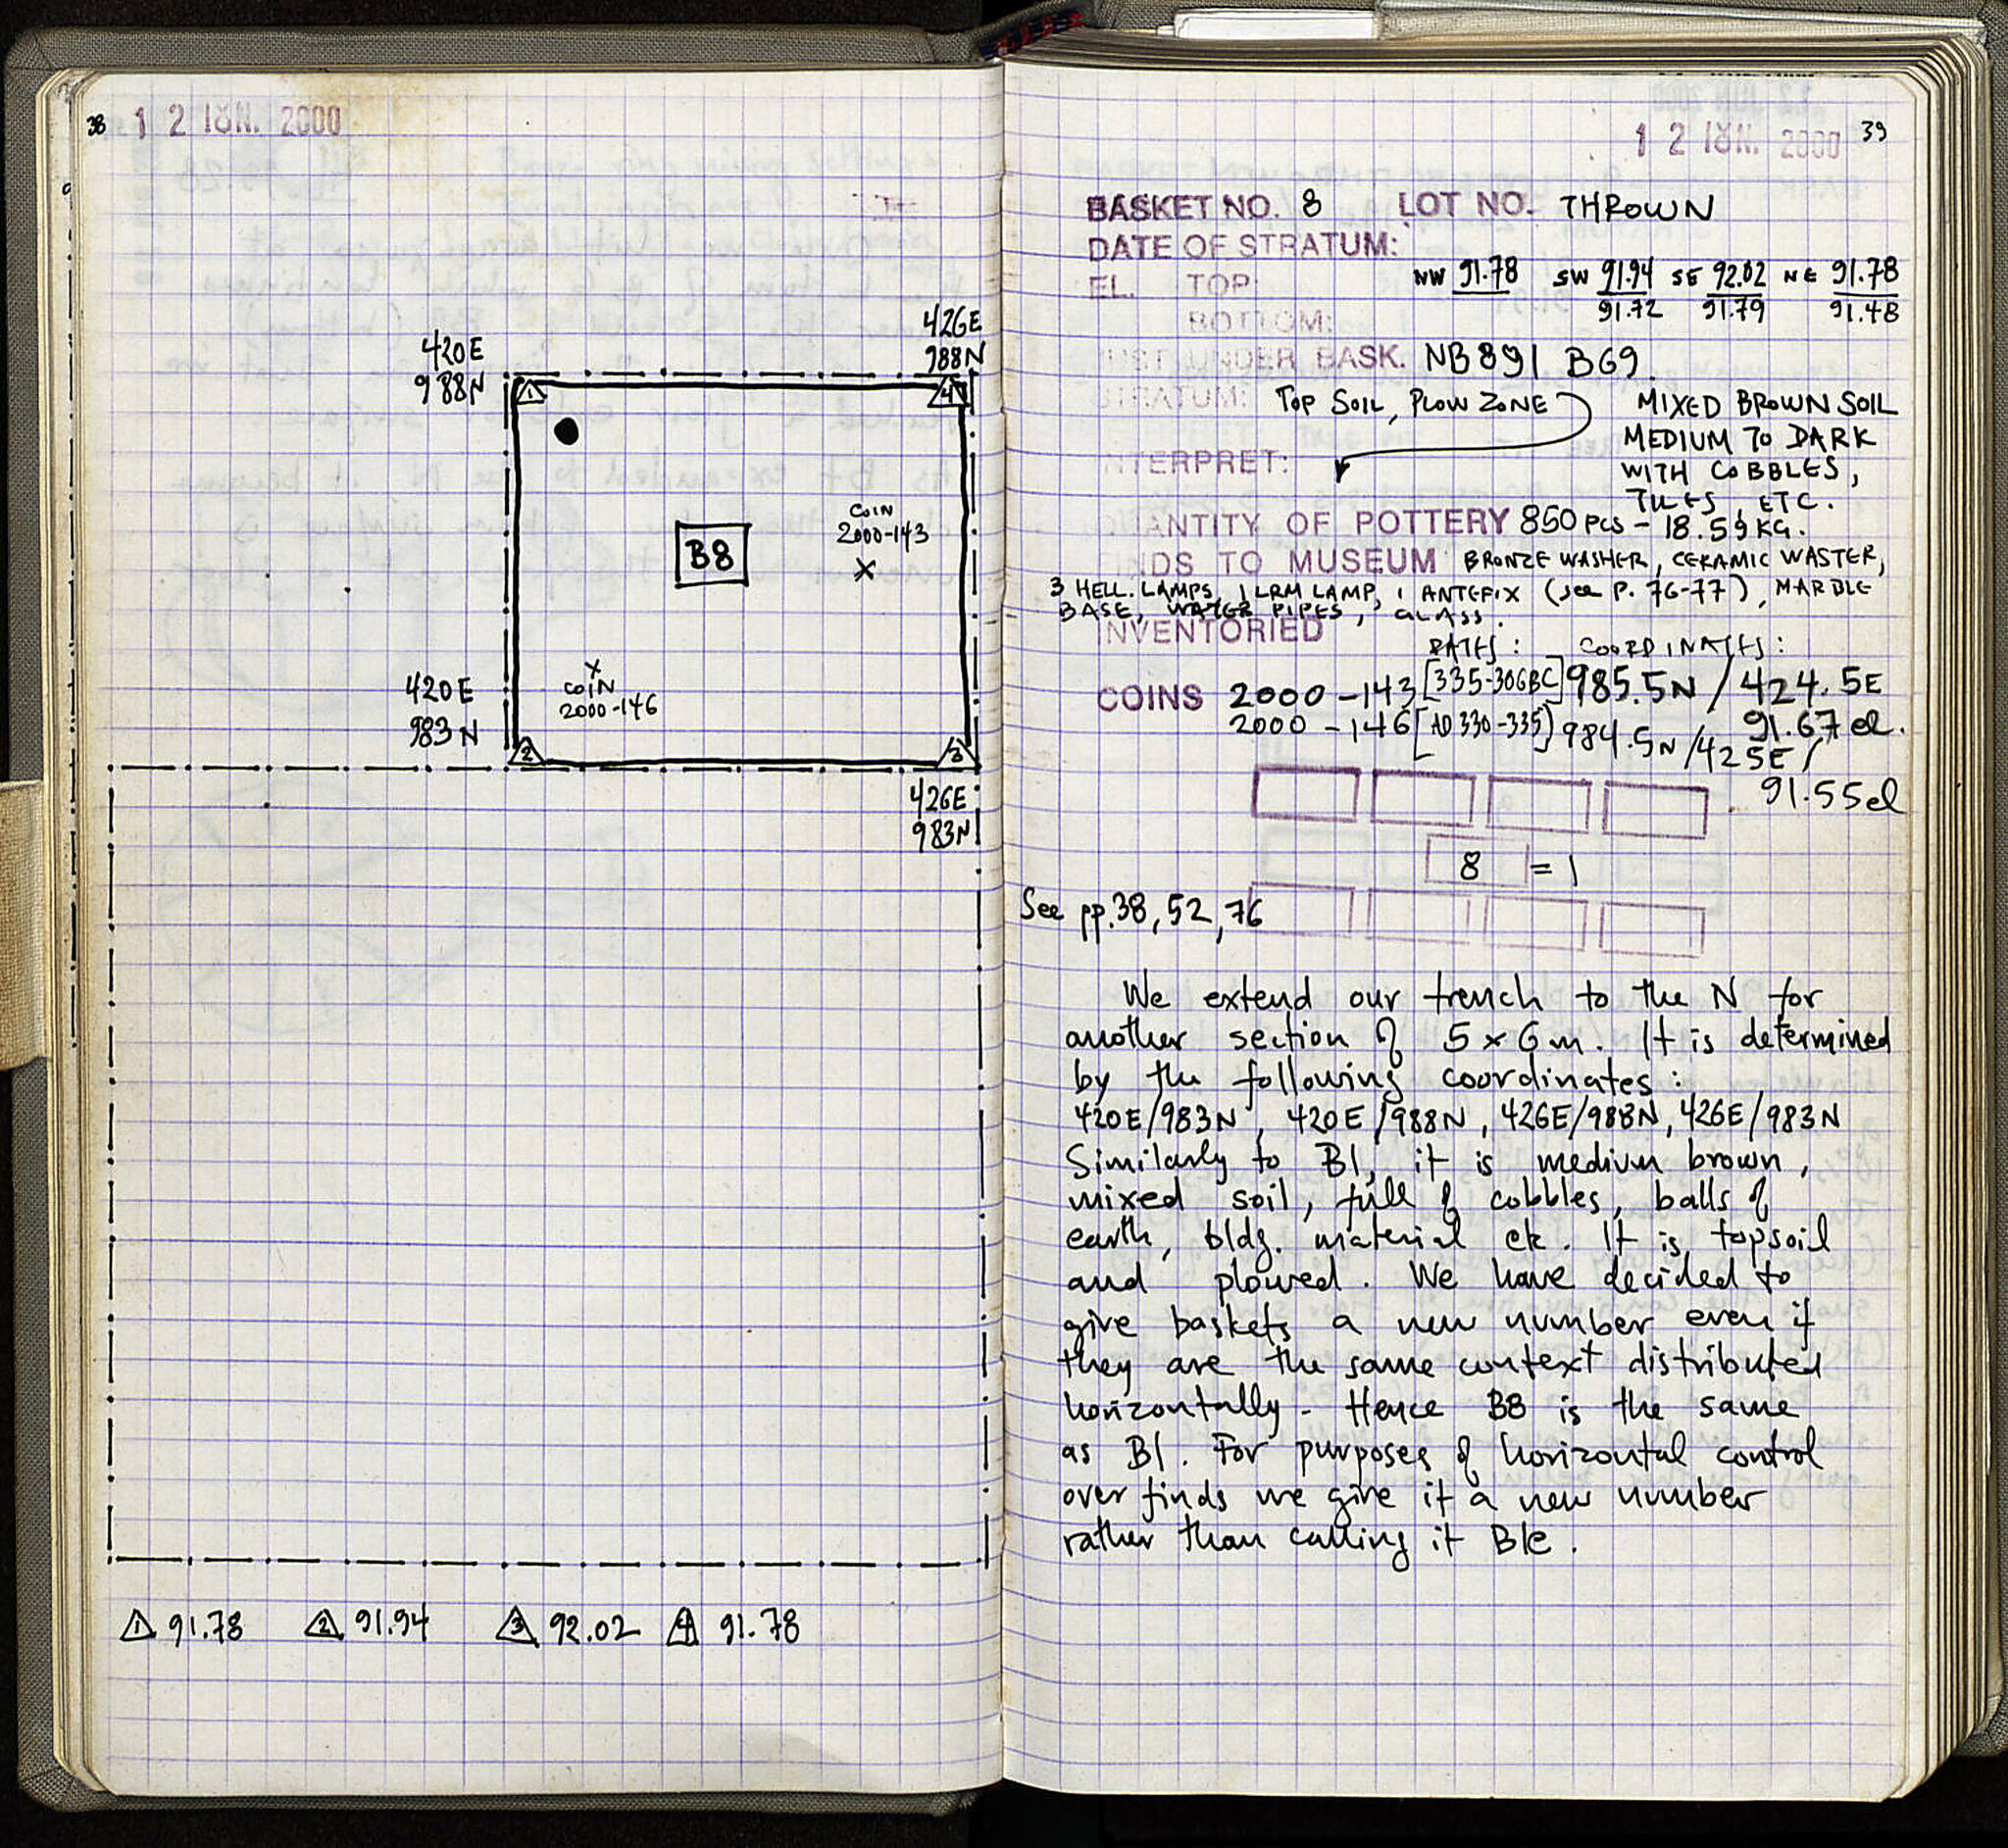 38
1 2 ΙΟΥΝ. 2000
426E
988N
420E
988N
1
4
COIN
2000-143
X
B8
X
COIN
2000-146
420E
983N
2
3
426E
983N
1 91.78 2 91.94 3 92.02 4 91.78
39
1 2 ΙΟΥΝ. 2000
BASKET NO. 8 LOT NO. THROWN
DATE OF STRATUM:
EL. TOP: NW 91.78 SW 91.94 SE 92.02 NE 91.78
BOTTOM: 91.72 91.79 91.48
JUST UNDER BASK. NB891 B69.
STRATUM: TOP SOIL, PLOW ZONE MIXED BROWN SOIL
MEDIUM TO DARK
INTERPRET: WITH COBBLES,
TILES, ETC.
QUANTITY OF POTTERY 850 PCS - 18.59 KG.
FINDS TO MUSEUM BRONZE WASHER, CERAMIC WASTER,
3 HELL. LAMPS, 1 LRM LAMP, 1 ANTEFIX (see P. 76-77), MARBLE
BASE, WATER PIPES, GLASS.
INVENTORIED
DATES: COORDINATES:
COINS 2000-143 [335-306BC] 985.5N / 424.5E
91.67 el.
2000-146 [AD 330-335] 984.5N / 425E /
91.55 el
8 = 1
See pp. 38, 52, 76
We extend our trench to the N for
another section of 5 x 6 m. It is determined
by the following coordinates:
420E/983N, 420E/988N, 426E/988N, 426E/983N
Similarly to B1, it is medium brown,
mixed soil, full of cobbles, balls of
earth, bldg. material etc. It is topsoil
and plowed. We have decided to
give baskets a new number even if
they are the same context distributed
horizontally. Hence B8 is the same
as B1. For purposes of horizontal control
over finds we give it a new number
rather than calling it B1e.